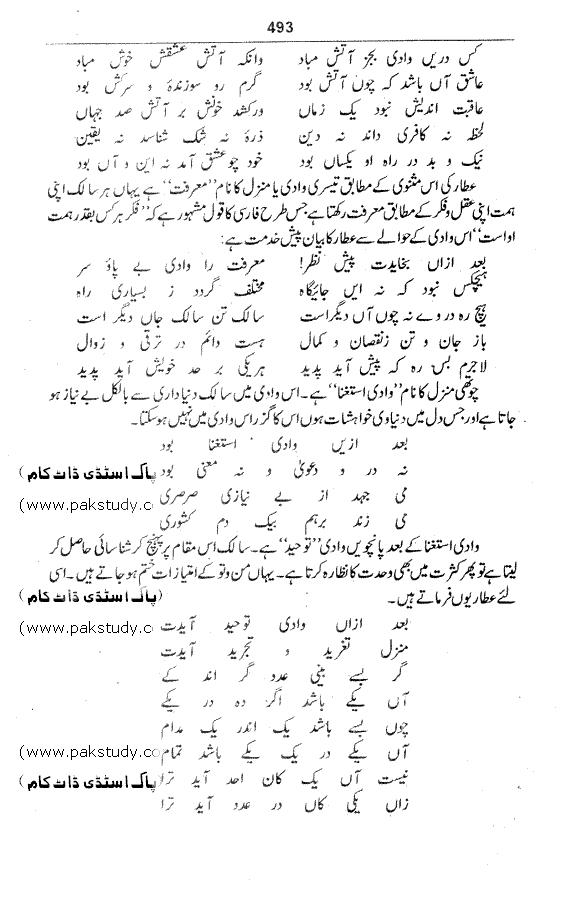 493
کس دریں وادی بجز آتش مباد وانکہ آتش عشقش خوش مباد
عاشق آں باشد کہ چوں آتش بود گرم رو سوزندۂ و سرکش بود
عاقبت اندیش نبود یک زماں ورکشد خوش بر آتش صد جہاں
لحظہ نہ کافری داند نہ دین ذرۂ نہ شک شناسد نہ یقین
نیک و بد در راہ او یکساں بود خود چو عشق آمد نہ این و آں بود
عطار کی اس مثنوی کے مطابق تیسری وادی یا منزل کا نام ”معرفت“ ہے یہاں ہر سالک اپنی
ہمت اپنی عقل و فکر کے مطابق معرفت رکھتا ہے جس طرح فارسی کا قول مشہور ہے کہ ”فکر ہر کس بقدر ہمت
اوست“ اس وادی کے حوالے سے عطار کا بیان پیش خدمت ہے:
بعد ازاں بنمایدت پیش نظر! معرفت را وادی بے پاؤ سر
ہیچکس نبود کہ نہ ایں جائیگاہ مختلف گردد ز بسیاری راہ
ہیچ رہ در وے نہ چوں آں دیگر است سالک تن سالک جاں دیگر است
باز جان و تن زنقصان و کمال ہست دائم در ترقی و زوال
لاجرم بس رہ کہ پیش آید پدید ہر یکی بر حد خویش آید پدید
چوتھی منزل کا نام ”وادی استغنا“ ہے۔ اس وادی میں سالک دنیا داری سے بالکل بے نیاز ہو
جاتا ہے اور جس دل میں دنیاوی خواہشات ہوں اس کا گزر اس وادی میں نہیں ہو سکتا۔
بعد ازیں وادی استغنا بود
نہ در و دعویٰ و نہ معنی بود (پاک اسٹڈی ڈاٹ کام
می جہد از بے نیازی صرصری
(www.pakstudy.co
می زند برہم بیک دم کشوری
وادی استغنا کے بعد پانچویں وادی ”توحید“ ہے۔ سالک اس مقام پر پہنچ کر شناسائی حاصل کر
لیتا ہے تو پھر کثرت میں بھی وحدت کا نظارہ کرتا ہے۔ یہاں من و تو کے امتیازات ختم ہو جاتے ہیں۔ اسی
لئے عطار یوں فرماتے ہیں۔ (پاک اسٹڈی ڈاٹ کام)
بعد ازاں وادی توحید آیدت
(www.pakstudy.co
منزل تفرید و تجرید آیدت
گر بسے بینی عدد گر اند کے
آں یکے باشد اگر دہ در یکے
چوں بسے باشد یک اندر یک مدام
آں یکے در یک یکے باشد تمام
(www.pakstudy.co
نیست آں یک کان احد آید ترا (پاک اسٹڈی ڈاٹ کام
زاں یکی کاں در عدد آید ترا